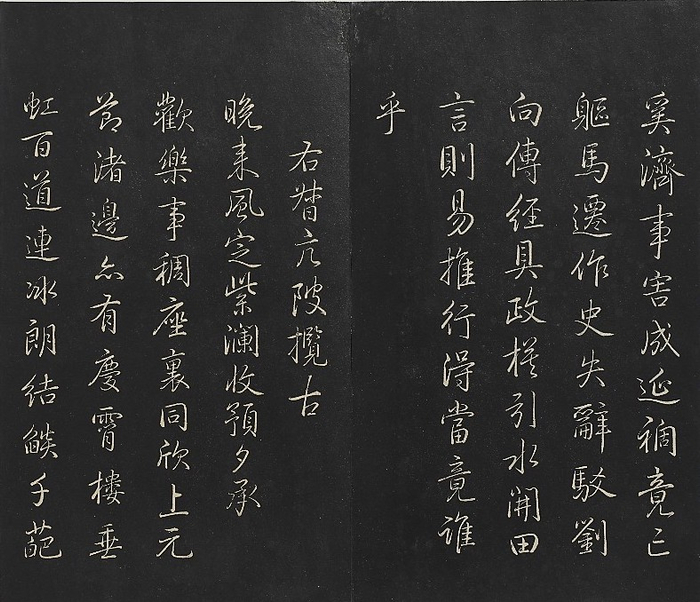 奚濟事害成延禍竟亡
軀馬遷作史失辭駁劉
向傳經具政模引水開田
言則易推行得當竟誰
乎
右督亢陂攬古
晩来風定紫瀾收預夕承
歡樂事稠座裏同欣上元
節渚邊亦有慶霄樓垂
虹百道連冰朗結燄千葩